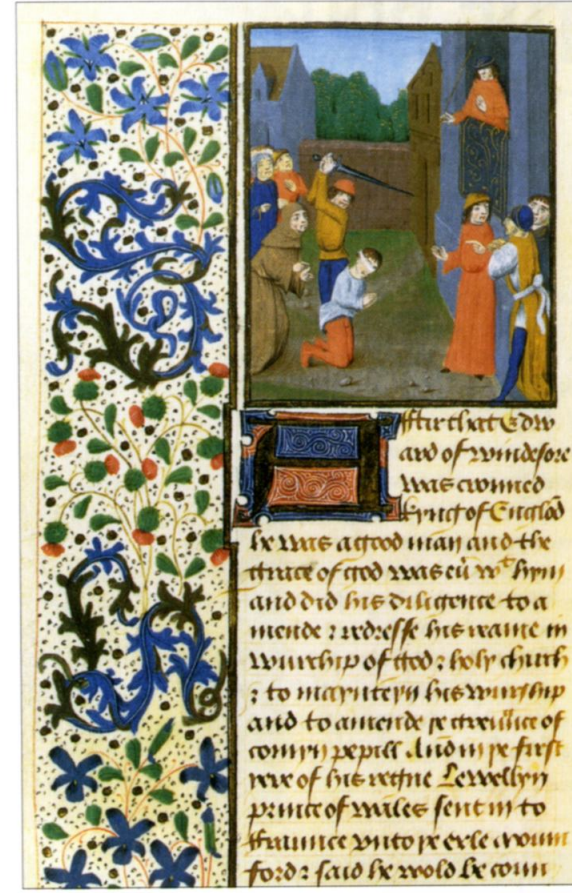 Aftir that Edw
ard of windesore
was crouned
kyng of Englōd
he was a good man and the
grace of god was eū wt hym
and did his diligence to a
mende ⁊ redresse his reame in
wurchip of god ⁊ holy church
⁊ to maynteyn his wurship
and to amende þe greuūce of
comyn pepill And in þe first
yere of his regne Lewellyn
prince of wales sent in to
ffraunce vnto þe erle moun
ford ⁊ said he wold be coun